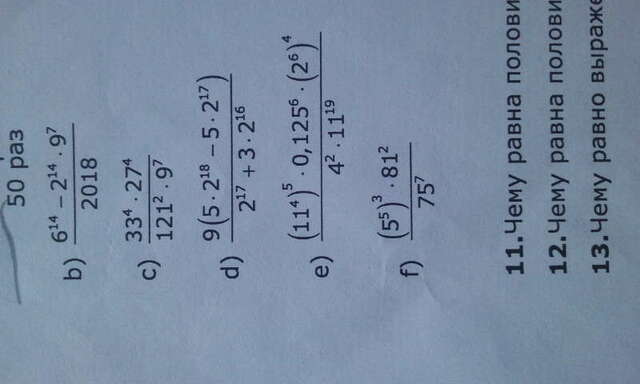 50 раз
b) (6¹⁴ − 2¹⁴ · 9⁷) / 2018
c) (33⁴ · 27⁴) / (121² · 9⁷)
d) 9(5 · 2¹⁸ − 5 · 2¹⁷) / (2¹⁷ + 3 · 2¹⁶)
e) ((11⁴)⁵ · 0,125⁶ · (2⁶)⁴) / (4² · 11¹⁹)
f) ((5⁵)³ · 81²) / 75⁷
11.Чему равна
12.Чему равна
13.Чему равно